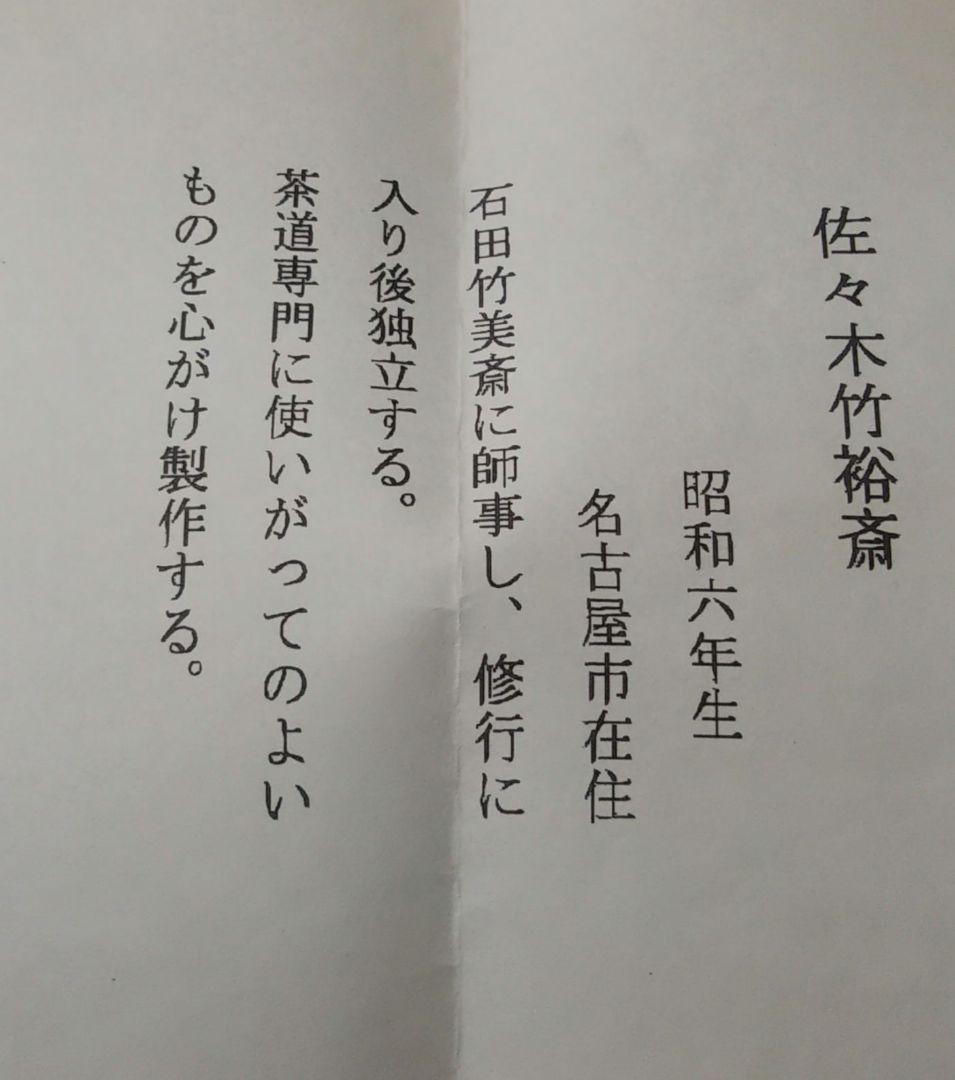 佐々木竹裕斎
昭和六年生
名古屋市在住
石田竹美斎に師事し、修行に
入り後独立する。
茶道専門に使いがってのよい
ものを心がけ製作する。